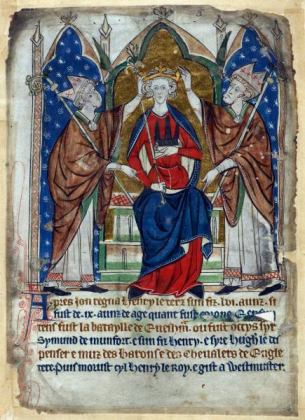 Apres Jon regna Henry le terz sun fiz .lvi. aunz. si
fust de .ix. aunz de age quant fust
tens fust la bataylle de Evesham. ou fust occys syr
Symund de munfort. e sun fiz Henry. e syre Hugh le di
penser e muz des barons e des chevalers de Engle
tere. Puis morust cyl Henry le Roy. e gist a Westmuster.